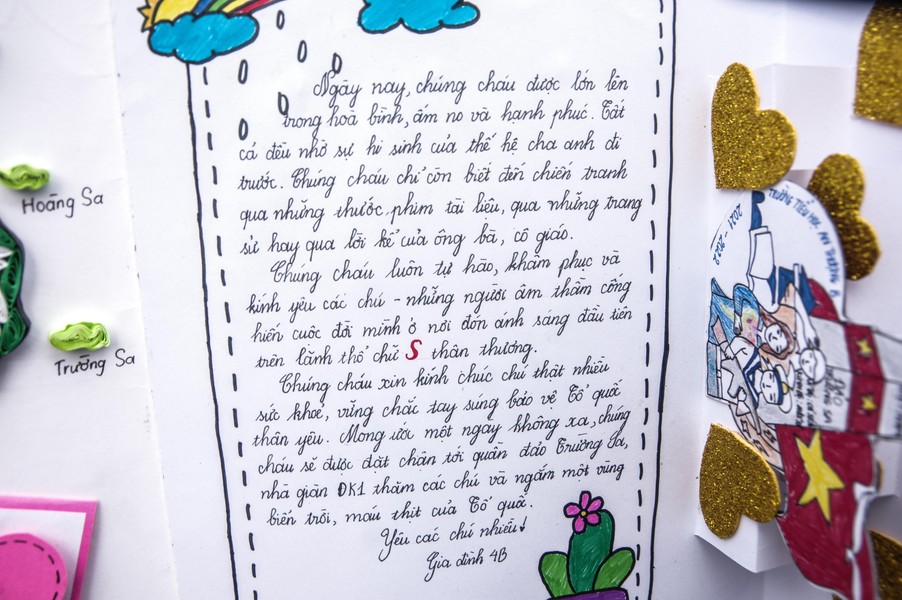 Ngày nay, chúng cháu được lớn lên
trong hoà bình, ấm no và hạnh phúc. Tất
cả đều nhờ sự hi sinh của thế hệ cha anh đi
trước. Chúng cháu chỉ còn biết đến chiến tranh
qua những thước phim tài liệu, qua những trang
sử hay qua lời kể của ông bà, cô giáo.
Chúng cháu luôn tự hào, khâm phục và
kính yêu các chú - những người âm thầm cống
hiến cuộc đời mình ở nơi đón ánh sáng đầu tiên
trên lãnh thổ chữ S thân thương.
Chúng cháu xin kính chúc chú thật nhiều
sức khoẻ, vững chắc tay súng bảo vệ Tổ quốc
thân yêu. Mong ước một ngày không xa, chúng
cháu sẽ được đặt chân tới quần đảo Trường Sa,
nhà giàn ĐK1 thăm các chú và ngắm một vùng
biển trời, máu thịt của Tổ quốc.
Yêu các chú nhiều!
Gia đình 4B
Hoàng Sa
Trường Sa
TRƯỜNG TIỂU HỌC AN THƯỢNG A
2021 - 2022